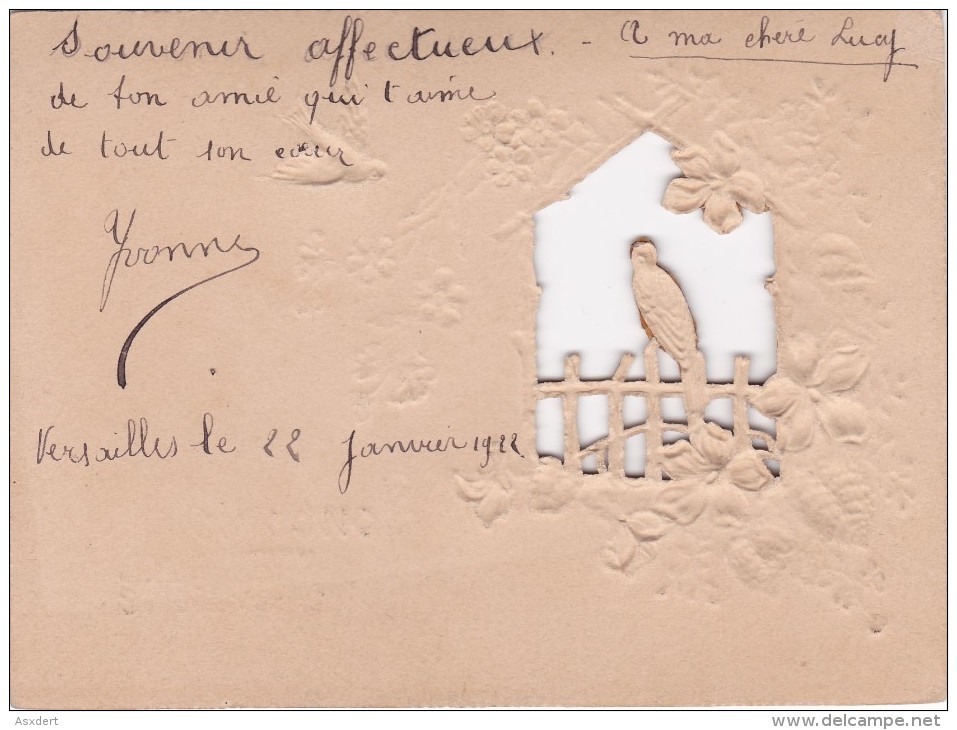 Souvenir affectueux. - A ma cheré Lucy
de ton amié qui t'aime
de tout son cœur
Yvonne
Versailles le 22 Janvier 1922
Asxdert
www.delcampe.net